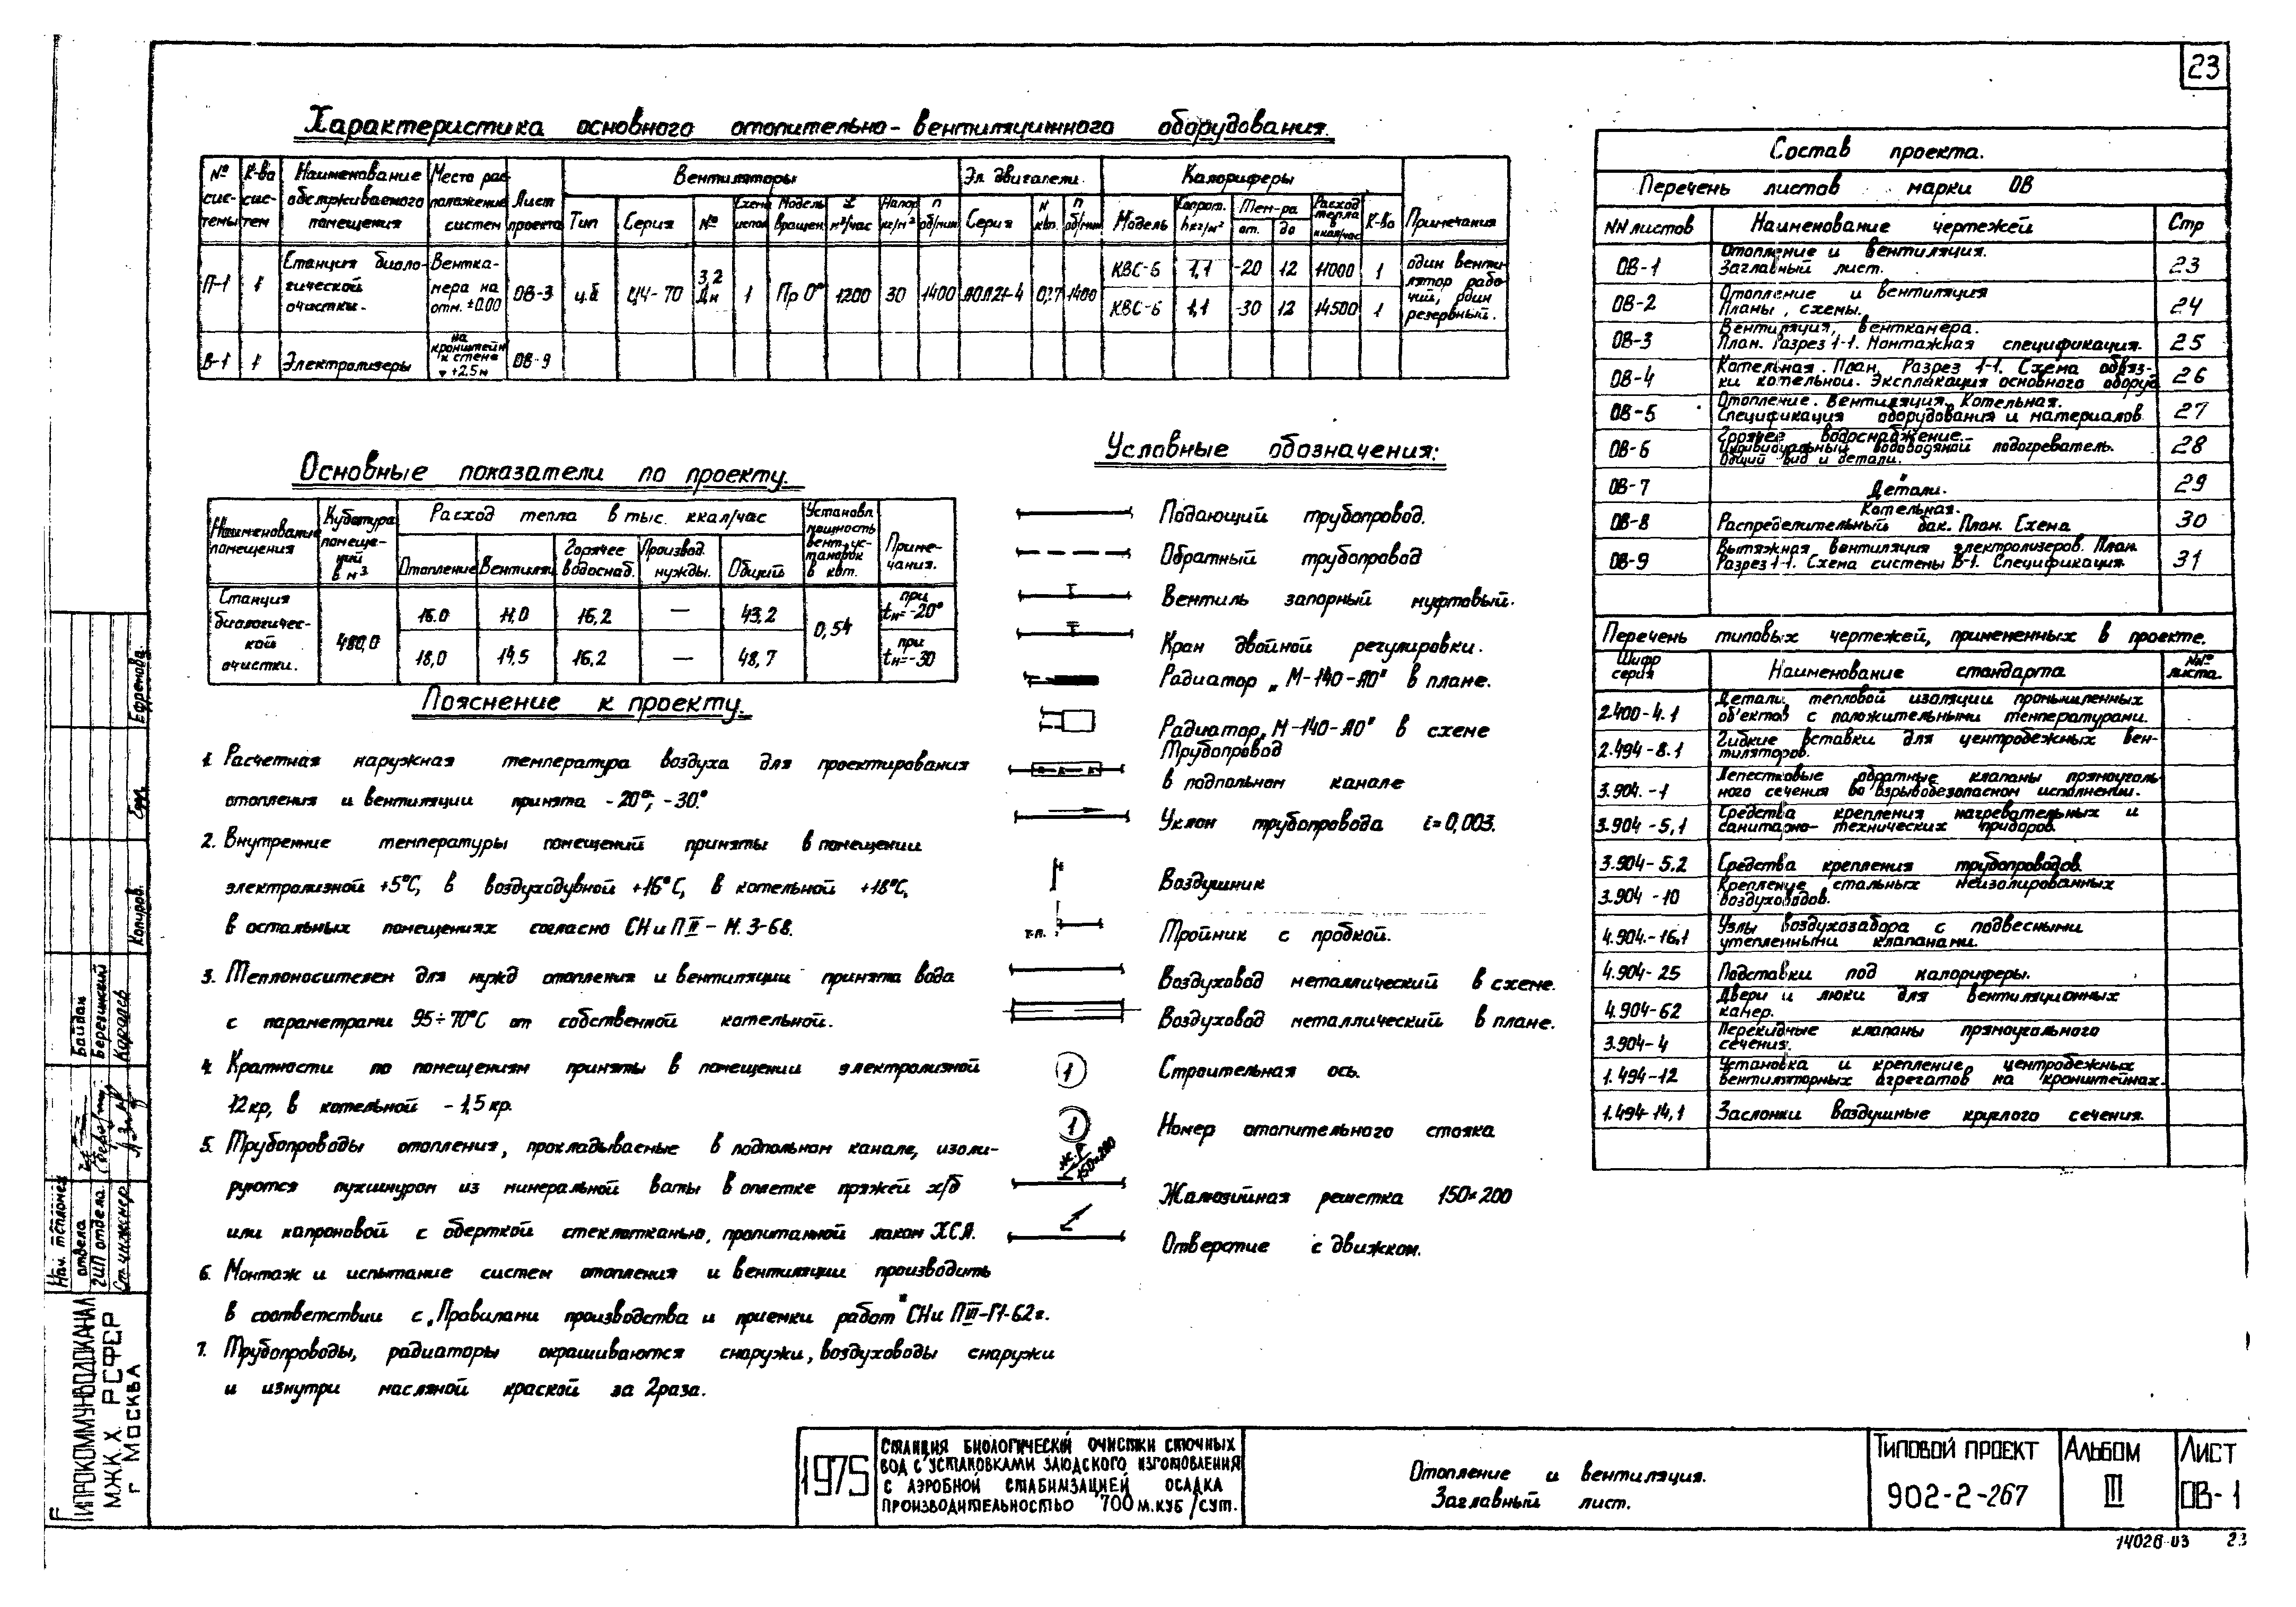 23
Характеристика основного отопительно-вентиляционного оборудования.
№ системы К-во систем Наименование обслуживаемого помещения Место расположения систем Лист проекта Вентиляторы Эл. двигатели Калориферы Примечания
Тип Серия № Схема испол Модель вращен. L м³/час Напор кг/м² n об/мин Серия N квт. n об/мин Модель Сопрот. h кг/м² Тем-ра от. до Расход тепла в ккал/час К-во
П-1 1 Станция биологической очистки. Венткамера на отм. ±0.00 ОВ-3 ц.б Ц4-70 3,2 1 Пр 0° 1200 30 1400 АОЛ21-4 0,27 1400 КВС-Б 1,1 -20 12 11000 1 один вентилятор рабочий, один резервный.
КВС-Б 1,1 -30 12 14500 1
В-1 1 Электролизеры на кронштейн к стене +2.5м ОВ-9
Основные показатели по проекту.
Наименование помещения Кубатура помещений в м³ Расход тепла в тыс. ккал/час Установл. мощность вент. установок в квт. Примечания.
Отопление Вентиляц Горячее водоснаб. Производ. нужды. Общий
Станция биологической очистки. 480,0 16.0 11,0 16,2 — 43,2 0,54 при tн=-20°
18,0 14,5 16,2 — 48,7 при tн=-30
Пояснение к проекту.
1. Расчетная наружная температура воздуха для проектирования
отопления и вентиляции принята -20°, -30°.
2. Внутренние температуры помещений приняты в помещении
электролизной +5°С, в воздуходувной +16°С, в котельной +18°С,
в остальных помещениях согласно СНиПII-М.3-68.
3. Теплоносителем для нужд отопления и вентиляции принята вода
с параметрами 95÷70°С от собственной котельной.
4. Кратности по помещениям приняты в помещении электролизной
12кр, в котельной - 1,5 кр.
5. Трубопроводы отопления, прокладываемые в подпольном канале, изоли-
руются пухшнуром из минеральной ваты в оплетке пряжей х/б
или капроновой с оберткой стеклотканью, пропитанной лаком ХСЛ.
6. Монтаж и испытание систем отопления и вентиляции производить
в соответствии с „Правилами производства и приемки работ" СНиПIII-Г1-62г.
7. Трубопроводы, радиаторы окрашиваются снаружи, воздуховоды снаружи
и изнутри масляной краской за 2раза.
Условные обозначения:
Подающий трубопровод.
Обратный трубопровод
Вентиль запорный муфтовый.
Кран двойной регулировки.
Радиатор „М-140-АО" в плане.
Радиатор „М-140-АО" в схеме
Трубопровод
в подпольном канале
Уклон трубопровода i=0,003.
Воздушник
т.п. Тройник с пробкой.
Воздуховод металлический в схеме.
Воздуховод металлический в плане.
1 Строительная ось.
1 Номер отопительного стояка
ж.р 150×200
Жалюзийная решетка 150×200
Отверстие с движком.
Состав проекта.
Перечень листов марки ОВ
NN листов Наименование чертежей Стр
ОВ-1 Отопление и вентиляция. Заглавный лист. 23
ОВ-2 Отопление и вентиляция Планы, схемы. 24
ОВ-3 Вентиляция, венткамера. План. Разрез 1-1. Монтажная спецификация. 25
ОВ-4 Котельная. План, Разрез 1-1. Схема обвязки котельной. Экспликация основного оборуд 26
ОВ-5 Отопление. Вентиляция, Котельная. Спецификация оборудования и материалов 27
ОВ-6 Горячее водоснабжение. Индивидуальный водоводяной подогреватель. Общий вид и детали. 28
ОВ-7 Детали. 29
ОВ-8 Котельная. Распределительный бак. План. Схема 30
ОВ-9 Вытяжная вентиляция электролизеров. План. Разрез 1-1. Схема системы В-1. Спецификация. 31
Перечень типовых чертежей, примененных в проекте.
Шифр серия Наименование стандарта №№ листа.
2.400-4.1 Детали тепловой изоляции промышленных объектов с положительными температурами.
2.494-8.1 Гибкие вставки для центробежных вентиляторов.
3.904.-1 Лепестковые обратные клапаны прямоугольного сечения во взрывобезопасном исполнении.
3.904-5,1 Средства крепления нагревательных и санитарно-технических приборов.
3.904-5.2 Средства крепления трубопроводов.
3.904-10 Крепление стальных неизолированных воздуховодов.
4.904.-16.1 Узлы воздухозабора с подвесными утепленными клапанами.
4.904-25 Подставки под калориферы.
4.904-62 Двери и люки для вентиляционных камер.
3.904-4 Перекидные клапаны прямоугольного сечения.
1.494-12 Установка и крепление центробежных вентиляторных агрегатов на кронштейнах.
1.494-14,1 Заслонки воздушные круглого сечения.
Ефренова.
Копиров.
Байдак
Березинский
Королев
Нач. тепломех отдела
ГИП отдела
Ст. инженер
ГИПРОКОММУНВОДОКАНАЛ
МЖКХ РСФСР
г МОСКВА
1975
СТАНЦИЯ БИОЛОГИЧЕСКОЙ ОЧИСТКИ СТОЧНЫХ
ВОД С УСТАНОВКАМИ ЗАВОДСКОГО ИЗГОТОВЛЕНИЯ
С АЭРОБНОЙ СТАБИЛИЗАЦИЕЙ ОСАДКА
ПРОИЗВОДИТЕЛЬНОСТЬЮ 700 М.КУБ/СУТ.
Отопление и вентиляция.
Заглавный лист.
ТИПОВОЙ ПРОЕКТ
902-2-267
АЛЬБОМ
III
ЛИСТ
ОВ-1
14026-03 23